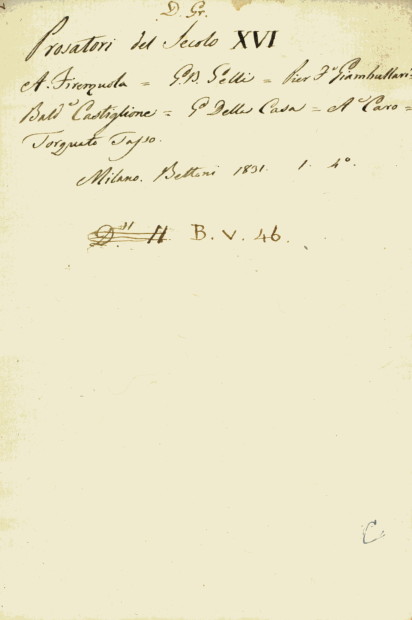 D. Gr.
Prosatori del Secolo XVI
A. Firenzuola = G. B. Gelli = Pier Fº Giambullari =
Baldº Castiglione = Gº Della Casa = Aº Caro =
Torquato Tasso.
Milano. Bettoni 1831. 1. 4º.
D. 11 B. V. 46.
C